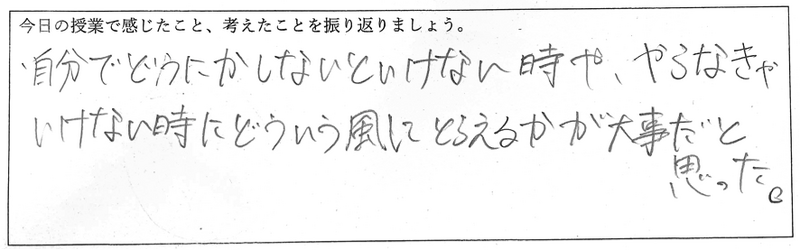 今日の授業で感じたこと、考えたことを振り返りましょう。
・自分でどうにかしないといけない時や、やらなきゃ
いけない時にどういう風にとらえるかが大事だと
思った。